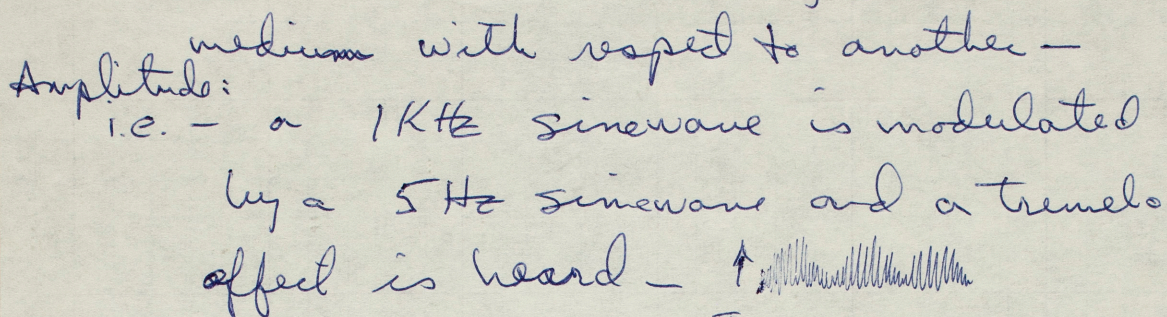 medium with respect to another —
Amplitude:
i.e. — a 1KHz sinewave is modulated
by a 5Hz sinewave and a tremelo
effect is heard — ↑